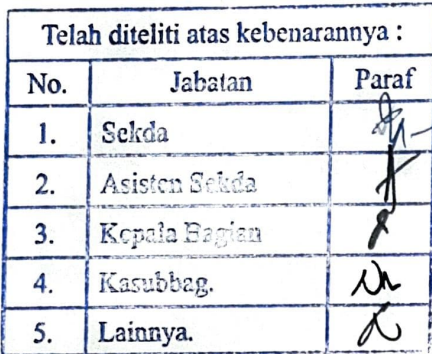 Telah diteliti atas kebenarannya :
No. Jabatan Paraf
1. Sekda
2. Asisten Sekda
3. Kepala Bagian
4. Kasubbag.
5. Lainnya.